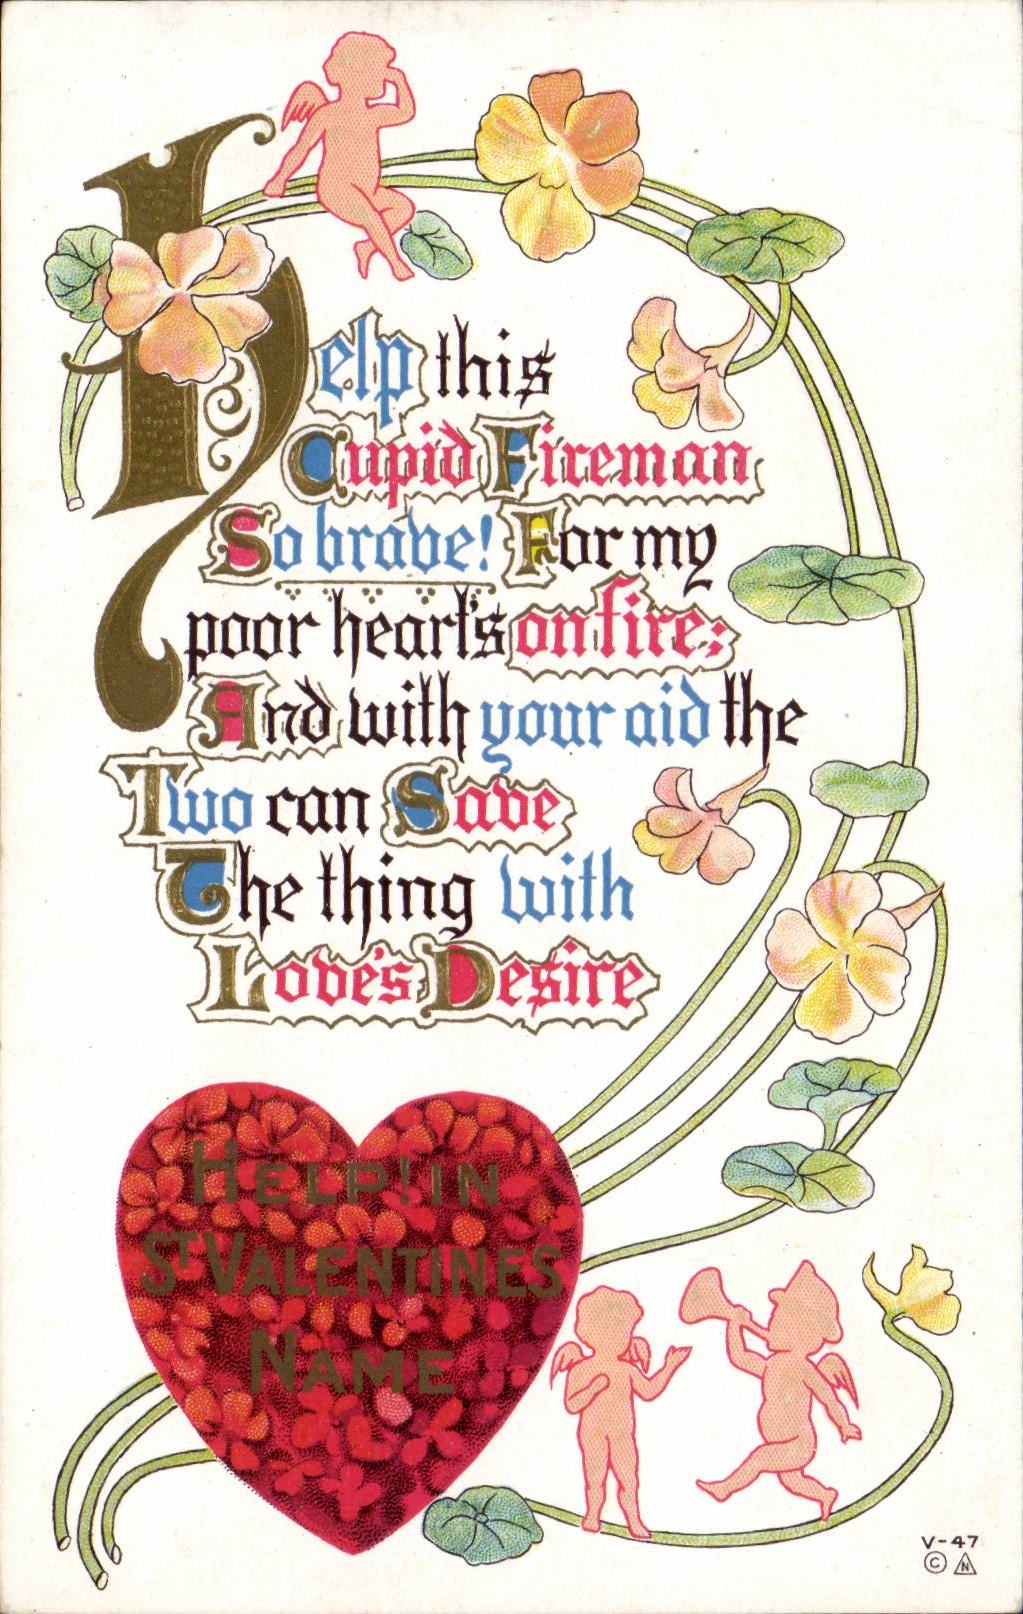 Help this
Cupid Fireman
So brave! For my
poor heart's on fire;
And with your aid the
Two can Save
The thing with
Love's Desire
HELP! IN
ST VALENTINES
NAME
V-47
© N